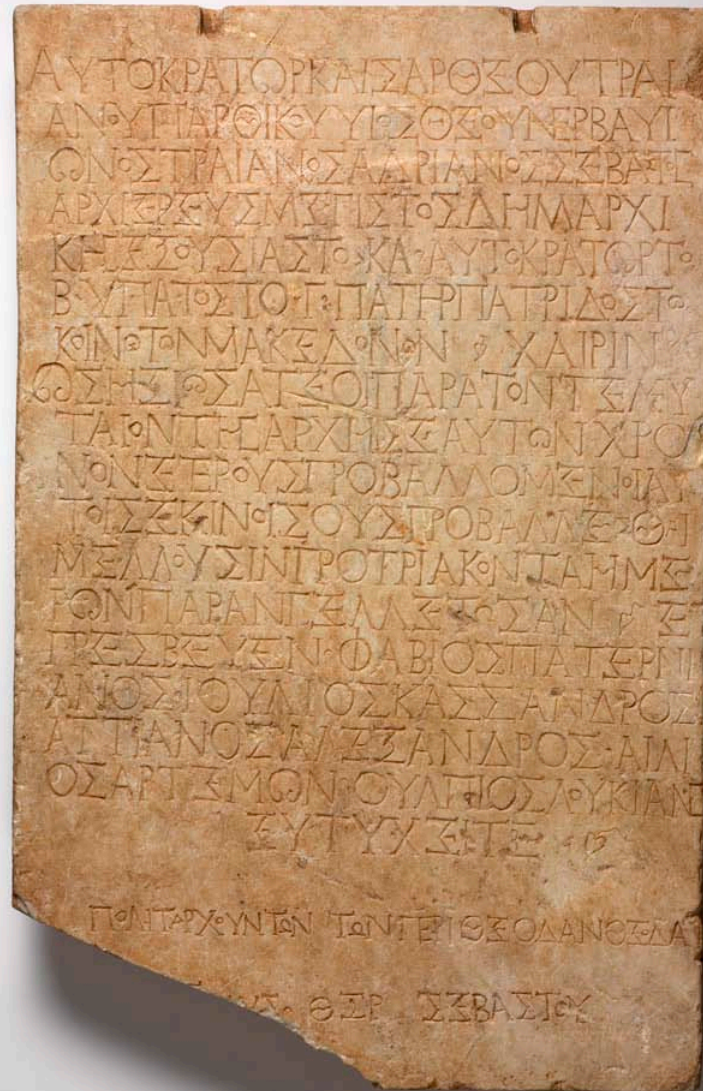 ΑΥΤΟΚΡΑΤΩΡΚΑΙΣΑΡΘΕΟΥΤΡΑΙ
ΑΝΟΥΠΑΡΘΙΚΟΥΥΙΟΣΘΕΟΥΝΕΡΒΑΥΙ
ΩΝΟΣΤΡΑΙΑΝΟΣΑΔΡΙΑΝΟΣΣΕΒΑΣΤΟΣ
ΑΡΧΙΕΡΕΥΣΜΕΓΙΣΤΟΣΔΗΜΑΡΧΙ
ΚΗΣΕΞΟΥΣΙΑΣΤΟ·ΚΑ·ΑΥΤΟΚΡΑΤΩΡΤΟ
Β·ΥΠΑΤΟΣΤΟ·Γ·ΠΑΤΗΡΠΑΤΡΙΔΟΣΤΩ
ΚΟΙΝΩΤΩΝΜΑΚΕΔΟΝΩΝ ΧΑΙΡΙΝ
ΩΣΗΞΙΩΣΑΤΕΟΙΠΑΡΑΤΟΝΤΕΛΕΥ
ΤΑΙΟΝΤΗΣΑΡΧΗΣΕΑΥΤΩΝΧΡΟ
ΝΟΝΕΤΕΡΟΥΣΠΡΟΒΑΛΛΟΜΕΝΟΙΑΥ
ΤΟΙΣΕΚΙΝΟΙΣΟΥΣΠΡΟΒΑΛΛΕΣΘΑΙ
ΜΕΛΛΟΥΣΙΝΠΡΟΤΡΙΑΚΟΝΤΑΗΜΕ
ΡΩΝΠΑΡΑΝΓΕΛΛΕΤΩΣΑΝ Ε
ΠΡΕΣΒΕΥΕΝ·ΦΑΒΙΟΣΠΑΤΕΡΝΙ
ΑΝΟΣ·ΙΟΥΛΙΟΣΚΑΣΣΑΝΔΡΟΣ
ΑΤΤΙΑΝΟΣΑΛΕΞΑΝΔΡΟΣ·ΑΙΛΙ
ΟΣΑΡΤΕΜΩΝ·ΟΥΛΠΙΟΣΛΟΥΚΙΑΝΟΣ
ΕΥΤΥΧΕΙΤΕ
ΠΟΛΙΤΑΡΧΟΥΝΤΩΝ ΤΩΝΠΕΡΙΘΕΟΔΑΝΘΕΔΑ
ΟΥΣ ΘΞΡ ΣΕΒΑΣΤΟΥ